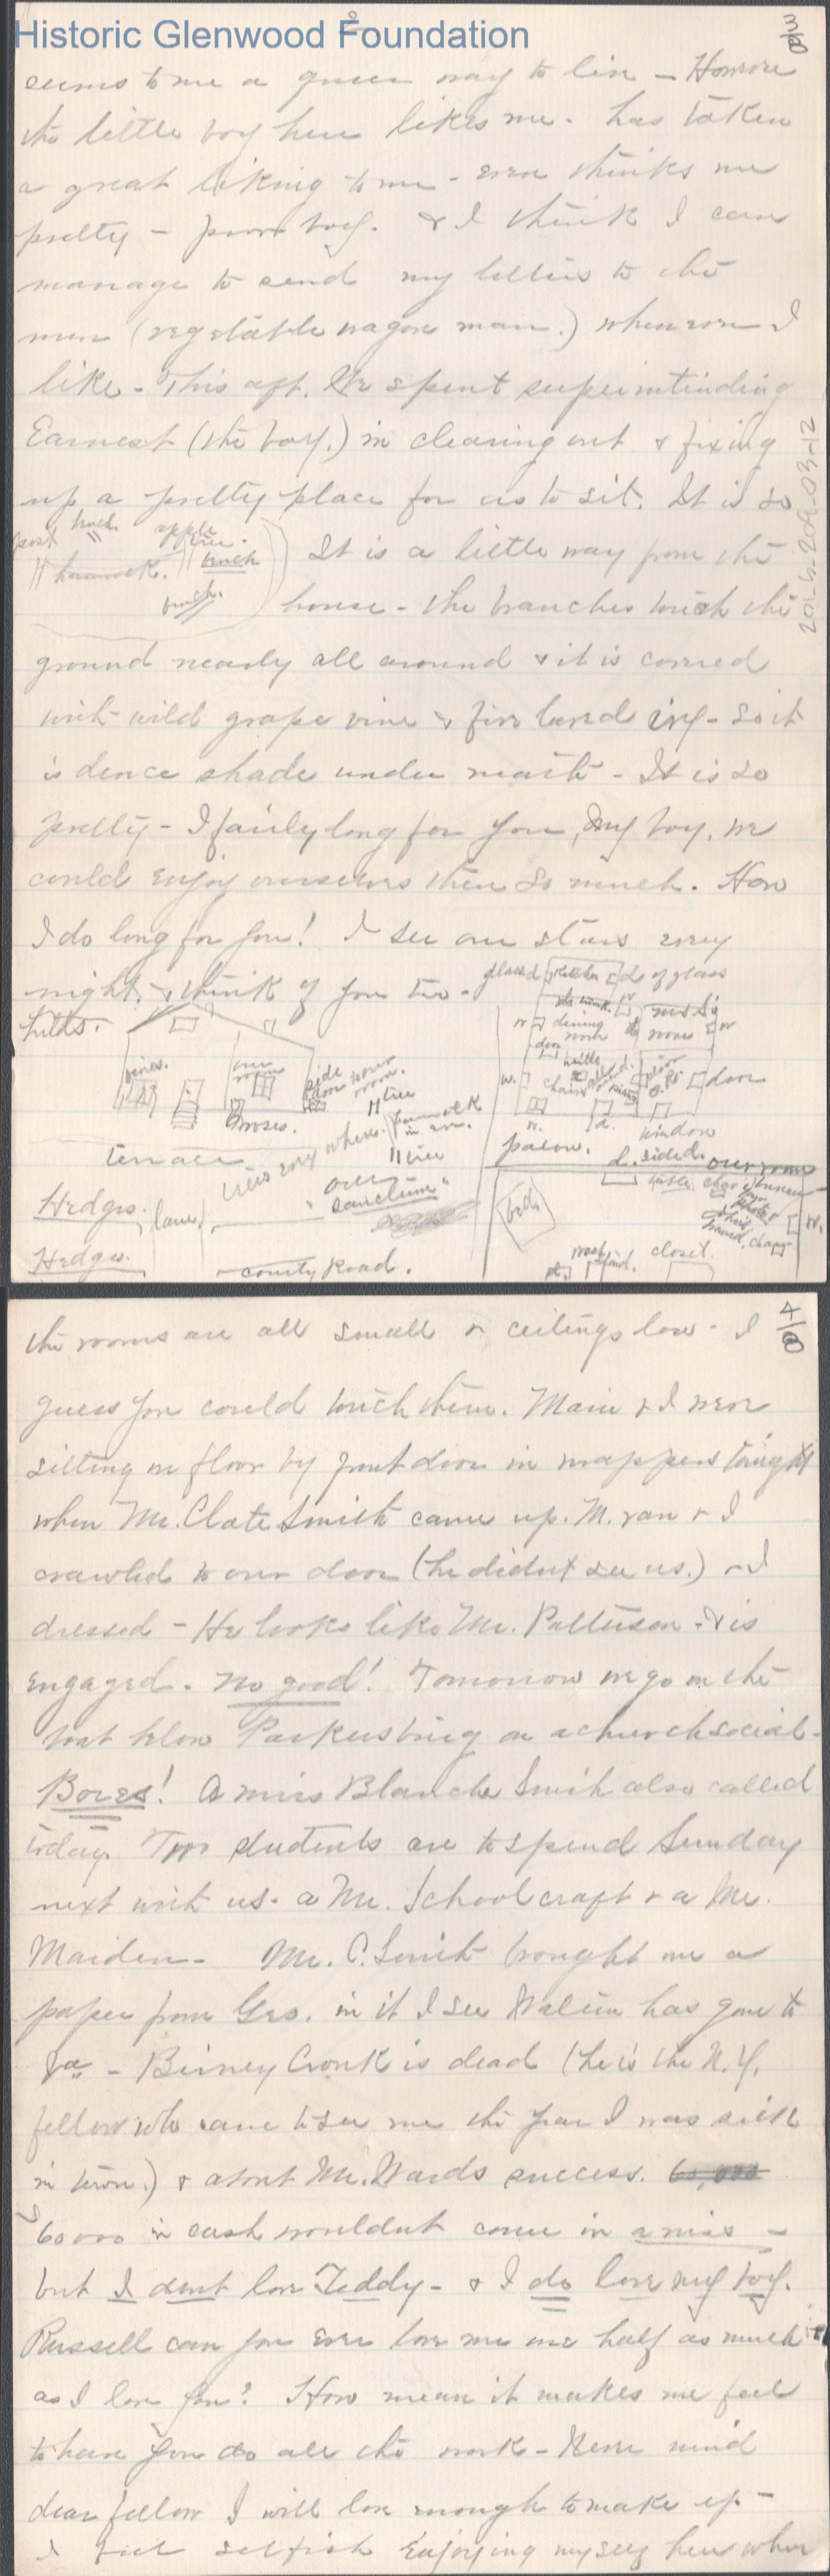 Historic Glenwood Foundation
3/8
seems to me a queer way to live – Homore
the little boy here likes me. has taken
a great liking to me – even thinks me
pretty – poor boy. & I think I can
manage to send my letters to the
man (vegetable wagon man.) whenever I
like – This aft. We spent superintending
Earnest (the boy.) in clearing out & fixing
up a pretty place for us to sit. It is so
post bench apple tree.
hammock. bench
bench.
It is a little way from the
house – the branches touch the
ground nearly all around & it is covered
with wild grape vine & five leaved ivy – so it
is dence shade under neath – It is so
pretty – I fairly long for you, my boy, we
could enjoy ourselves then so much. How
I do long for you! I see our stars every
night & think of you too –
hills.
vines.
our room
side door
our room.
roses.
tree
hammock
tree
trees every where.
terrace
"our sanctum"
Hedges.
lane
Hedges.
county Road.
glass d kitchen d of glass
dining room
door
w.
door
window
parlor.
our room
table chair bureau
bed
wash stand.
closet.
2015-209-03-12
4/8
the rooms are all small & ceilings low – I
guess you could touch them. Mamie & I were
sitting on floor by front door in wrappers tonight
when Mr. Clate Smith came up. M. ran & I
crawled to our door (he didnt see us.) & I
dressed – He looks like Mr. Patterson – & is
engaged. No good! Tomorrow we go on the
boat below Parkersburg on a church social –
Bores! A miss Blanche Smith also called
today. Two students are to spend Sunday
next with us. a Mr. Schoolcraft & a Mr.
Maiden – Mr. C. Smith brought me a
paper from Geo. in it I see has gone to
– Birney Cronk is dead (he is the N.Y.
fellow who came to see me the year I was sick
in town.) & about Mr. Wards success. 60,000
60000 in cash wouldnt come in amiss –
but I dont love Teddy – & I do love my boy.
Russell can you ever love me one half as much
as I love you? How mean it makes me feel
to have you do all the work – Never mind
dear fellow I will love enough to make up –
I feel selfish enjoying myself here when